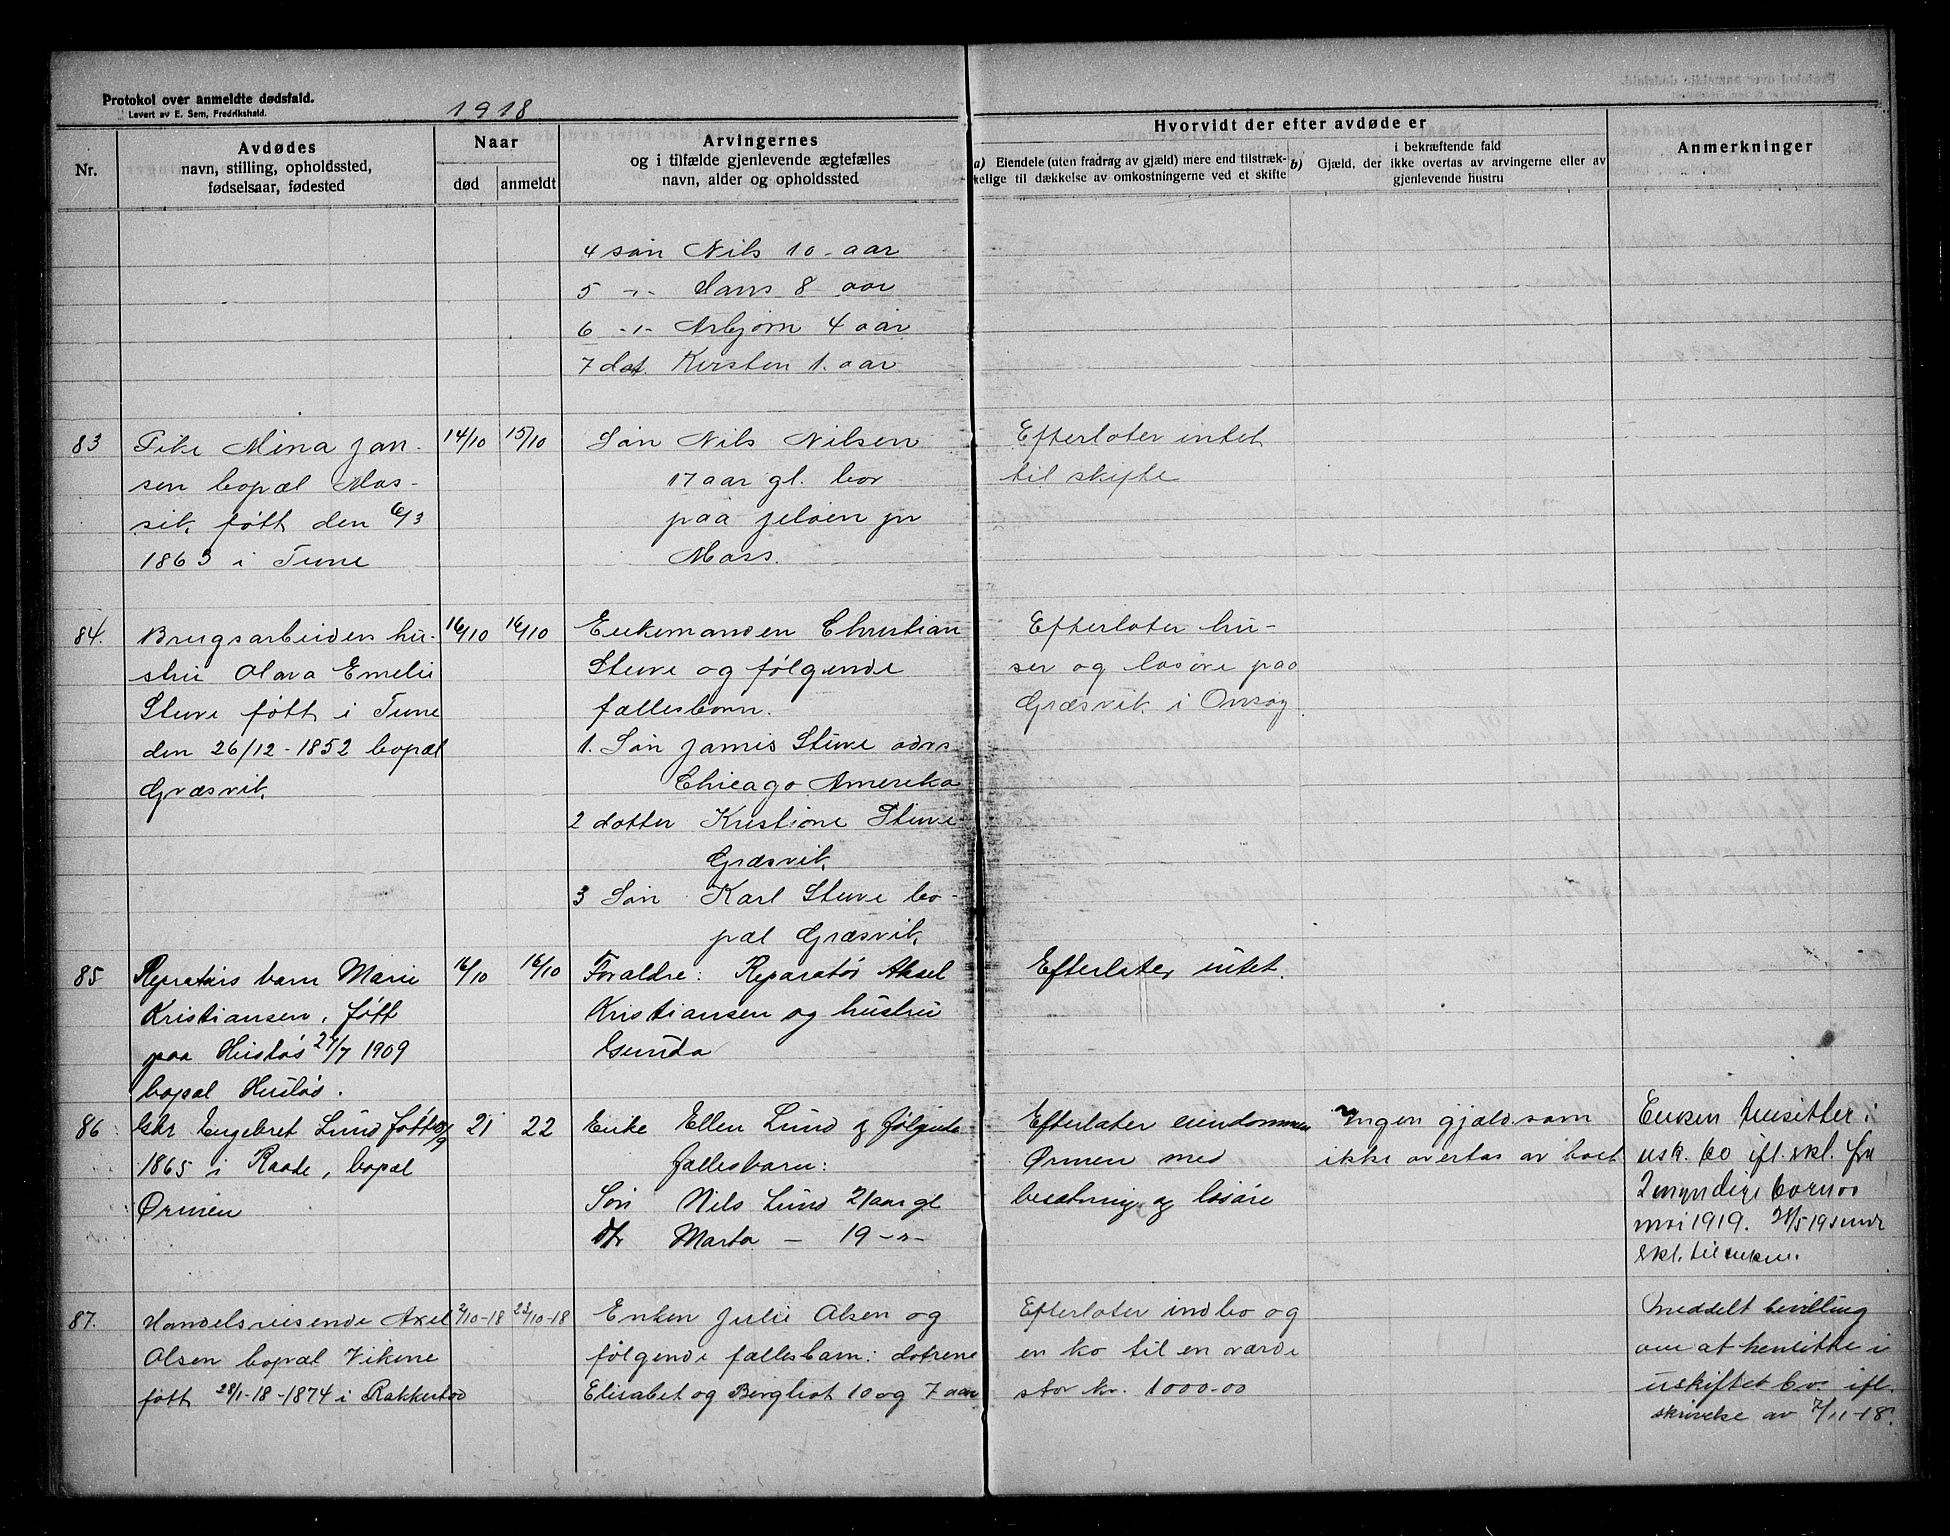 Protokol over anmeldte dødsfald.
Levert av E. Sem, Fredrikshald.
1918.
Nr.
Avdødes
navn, stilling, opholdssted,
fødselsaar, fødested
Naar
død
anmeldt
Arvingernes
og i tilfælde gjenlevende ægtefælles
navn, alder og opholdssted
Hvorvidt der efter avdøde er
a) Eiendele (uten fradrag av gjæld) mere end tilstræk-
kelige til dækkelse av omkostningerne ved et skifte
b) Gjæld, der
i bekræftende fald
ikke overtas av arvingerne eller av
gjenlevende hustru
Anmerkninger
4 søn Nils 10 aar
5 -"- Hans 8 aar
6 -"- Asbjørn 4 aar
7 dat. Kirsten 1. aar
83
Pike Mina Jan-
sen bopæl Mos-
sik, født den 6/3
1863 i Tune
14/10
15/10
Søn Nils Nilsen
17 aar gl. bor
paa Jeløen pr
Moss.
Efterlater intet
til skifte
84.
Brugsarbeiders hu-
stru Olava Emelie
Stuve født i Tune
den 26/12-1852 bopæl
Græsvik
16/10
16/10
Enkemanden Christian
Stuve og følgende
fællesbørn.
1. Søn James Stuve adrs
Chicago Amerika
2 datter Kristiane Stuve
Græsvik,
3 Søn Karl Stuve bo-
pæl Græsvik,
Efterlater hu-
ser og løsøre paa
Græsvik i Onsøy
85
Repratørs barn Marie
Kristiansen, født
paa Husløs 29/7 1909
bopæl Husløs.
16/10
16/10
Foraldre: Reparatør Aksel
Kristiansen og hustru
Gunda
Efterlater intet.
86
Gbr Engebret Lund født /9
1865 i Raade, bopæl
Ørmen
21
22
Enke Ellen Lund og følgende
fællesbarn:
Søn Nils Lund 21 aar gl
dtr Marta — 19 -"-
Efterlater eiendommen
Ørmen med
besætning og løsøre
Ingen gjæld som
ikke overtas av boet
Enken hensitter i
usk. bo ifl. skl. fra
2 myndige børn
mai 1919. 28/5 19 sendt
skl. til enken.
87.
Handelsreisende Axel
Olsen bopæl Vikene
født 28/1-18-1874 i Rakkestad
2/10-18
22/10-18
Enken Julie Olsen og
følgende fællesbarn: døtrene
Elisabet og Bergliot 10 og 7 aar
Efterlater indbo og
en ko til en værdi
stor kr. 1000.00
Meddelt bevilling
om at hensitte i
uskiftet bo ifl.
skrivelse av 7/11-18.